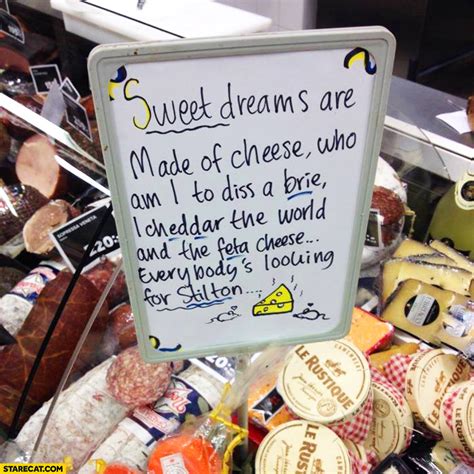 Sweet dreams are
Made of cheese, who
am I to diss a brie,
I cheddar the world
and the feta cheese...
Everybody's looking
for Stilton...
SOPRESSA VENETA
220
LE RUSTIQUE
LE RUSTIQUE
STARECAT.COM